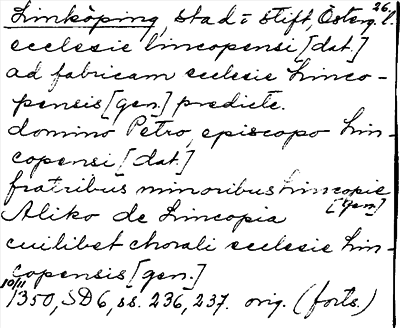 26.
Linköping, stad i stift, Österg. l.
ecclesie lincopensi [dat.]
ad fabricam ecclesie Linco-
pensis [gen.] predicte.
domino Petro, episcopo Lin-
copensi [dat.]
fratribus minoribus Lincopie
[gen.]
Aliko de Lincopia
cuilibet chorali ecclesie Lin-
copensis [gen.]
10/11
1350, SD 6, ss. 236, 237. orig. (forts.)